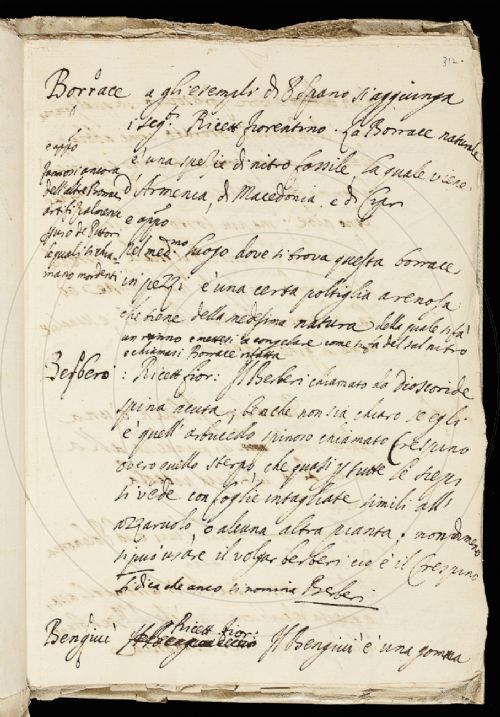 312.
Borrace a gli esempli di si aggiunga
i seg.ti Ricett fiorentino. La Borrace naturale
è una spezie di nitro fossile, la quale viene
d'Armenia, di Macedonia, e di
e app.o
fannosi ancora
dell'altre Borraci
artifizialmente
p uso de Pittori
le quali si chia-
mano mordenti
e app.o
Nel med.mo luogo dove si trova questa borrace
in pezzi è una certa poltiglia arenosa
che tiene della medesima natura della quale si fà
un ranno e mettesi à congelare come si fà del salnitro
e chiamasi Borrace rifatta
Berbero: Ricett fior: Il Berberi chiamato da Dioscoride
spina acuta, benche non sia chiaro se egli
è quell'arbuscello spinoso chiamato Crespino
overo quello sterpo, che quasi p tutte le siepi
si vede con foglie intagliate simili all'
azzaruolo, o alcuna altra pianta; nondimeno
si può usare il volgar berberi cio è il Crespino
si dica che anco si nomina Berberi
Bengiuì Ricett fior: Il Bengiuì è una gomma